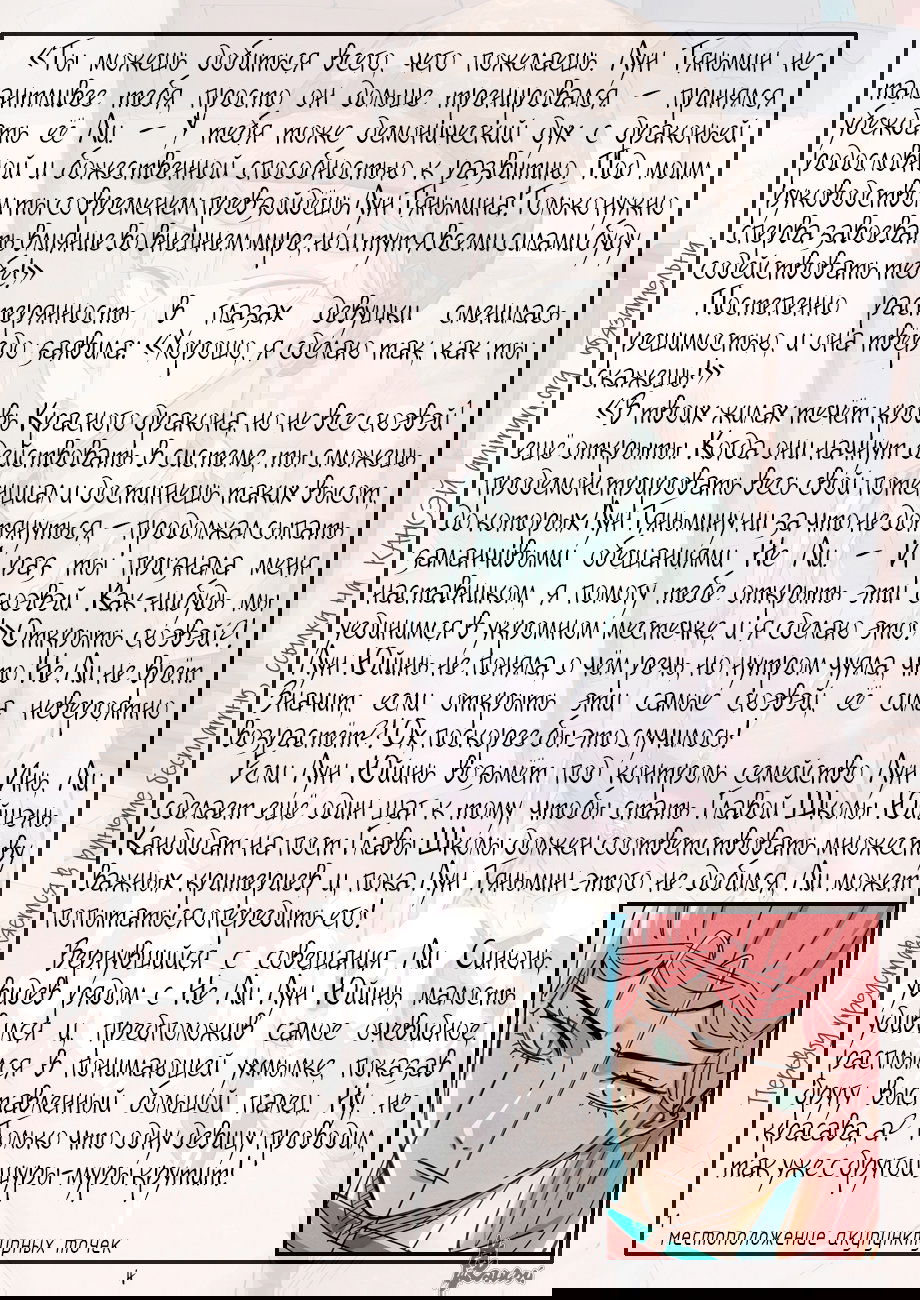 «Ты можешь добиться всего, чего пожелаешь. Лун Тяньмин не
талантливее тебя, просто он дольше тренировался, – принялся
убеждать её Ли. – У тебя тоже демонический дух с драконьей
родословной и божественной способностью к развитию. Под моим
руководством ты со временем превзойдёшь Лун Тяньмина! Только нужно
сперва завоевать влияние во внешнем мире, но и тут я всеми силами буду
содействовать тебе!»
Постепенно растерянность в глазах девушки сменилась
решимостью, и она твёрдо заявила: «Хорошо, я сделаю так, как ты
скажешь!»
«В твоих жилах течёт кровь Красного дракона, но не все сюэвэй
ещё открыты. Когда они начнут действовать в системе, ты сможешь
продемонстрировать весь свой потенциал и достигнешь таких высот,
до которых Лун Тяньмину ни за что не дотянуться, – продолжал сыпать
заманчивыми обещаниями Не Ли. – И раз ты признала меня
наставником, я помогу тебе открыть эти сюэвэй. Как-нибудь мы
уединимся в укромном местечке, и я сделаю это!»
«Открыть сюэвэй?!
Лун Юйинь не поняла, о чём речь, но нутром чуяла, что Не Ли не врёт.
Значит, если открыть эти самые сюэвэй, её сила невероятно
возрастёт?! Ох, поскорее бы это случилось!
Если Лун Юйинь возьмёт под контроль семейство Лун Инь, Ли
сделает ещё один шаг к тому, чтобы стать Главой Школы Юйшэнь.
Кандидат на пост Главы Школы должен соответствовать множеству
важных критериев, и пока Лун Тяньмин этого не добился, Ли может
попытаться опередить его!
Вернувшийся с совещания Ли Синюнь,
увидев рядом с Не Ли Лун Юйинь, малость
удивился и, предположив самое очевидное,
расплылся в понимающей ухмылке, показав
другу выставленный большой палец. Ну, не
красава, а? Только что одну девицу проводил,
так уже с другой шуры-муры крутит!
местоположение акупунктурных точек
14